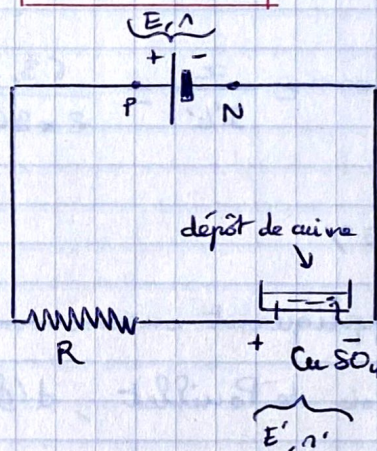 E, r
+ -
P N
dépôt de cuivre
R + -
Cu SO₄
E', r'